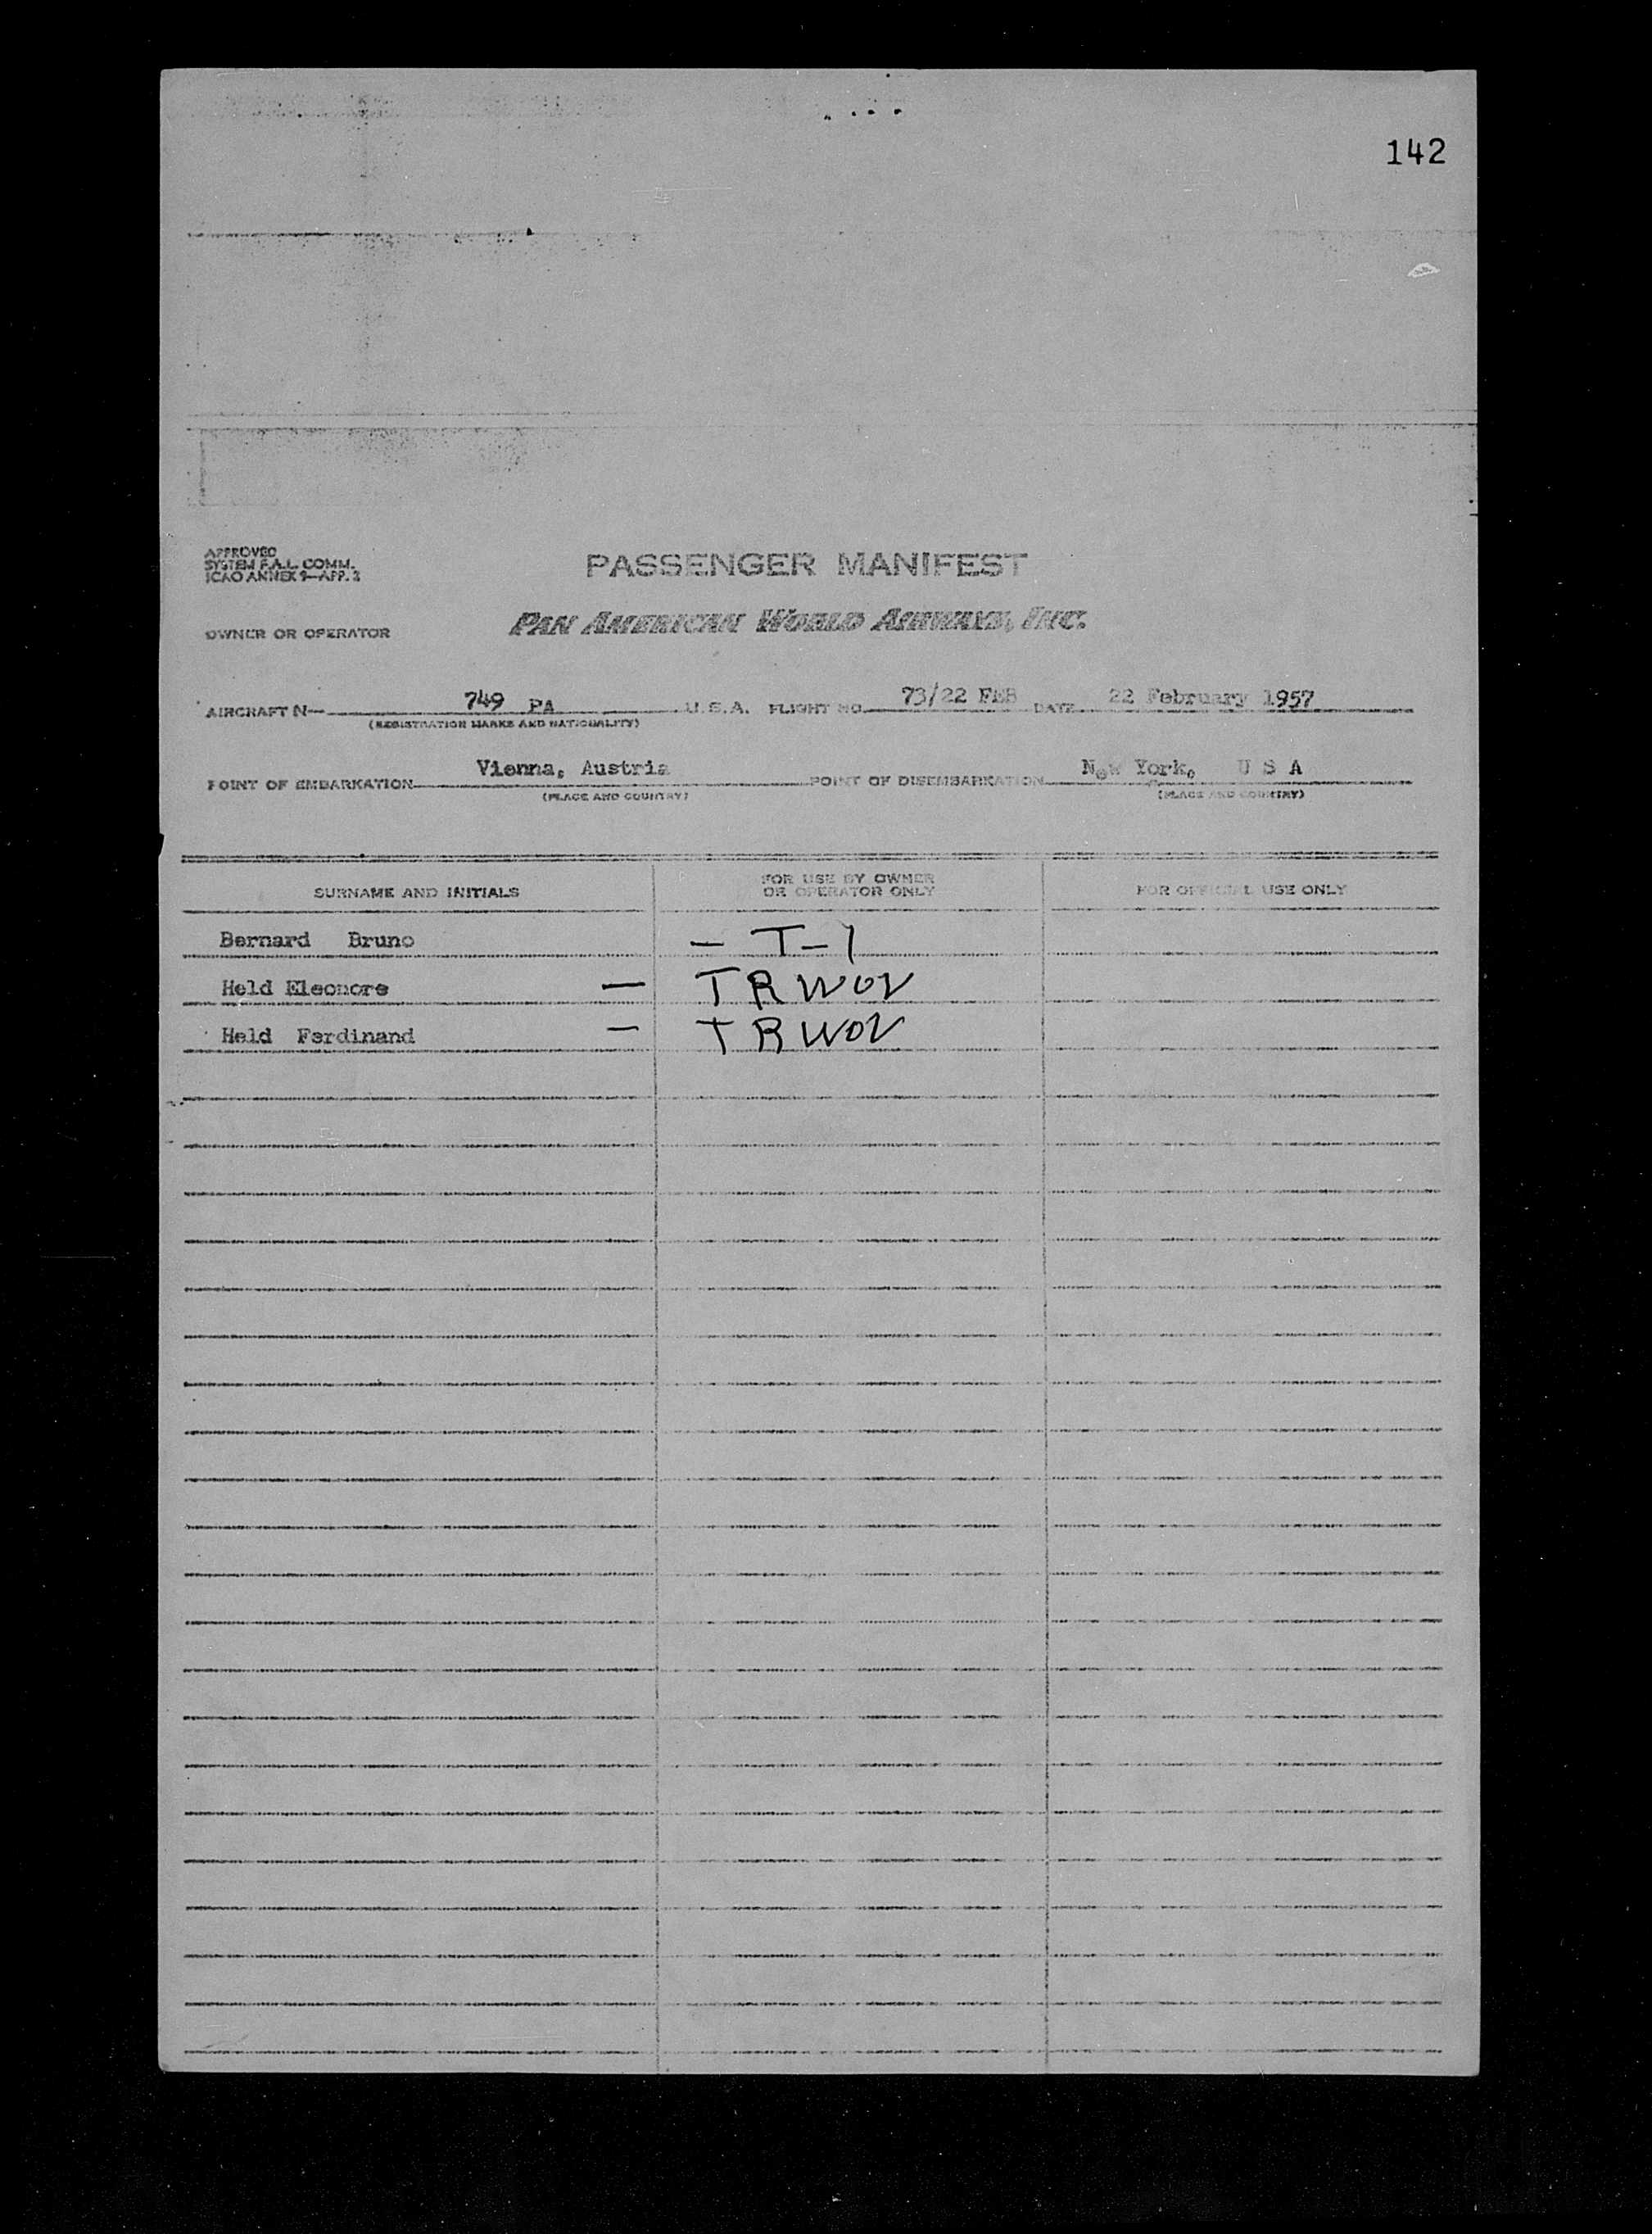 142
APPROVED
SYSTEM F.A.L. COMM.
ICAO ANNEX 9—APP. 2
PASSENGER MANIFEST
OWNER OR OPERATOR
PAN AMERICAN WORLD AIRWAYS, INC.
AIRCRAFT N— 749 PA U.S.A. FLIGHT NO. 73/22 FEB DATE 22 February 1957
(REGISTRATION MARKS AND NATIONALITY)
POINT OF EMBARKATION Vienna, Austria POINT OF DISEMBARKATION New York, U S A
(PLACE AND COUNTRY) (PLACE AND COUNTRY)
SURNAME AND INITIALS FOR USE BY OWNER OR OPERATOR ONLY FOR OFFICIAL USE ONLY
Bernard Bruno — T-1
Held Eleonore — TRWOV
Held Ferdinand — TRWOV